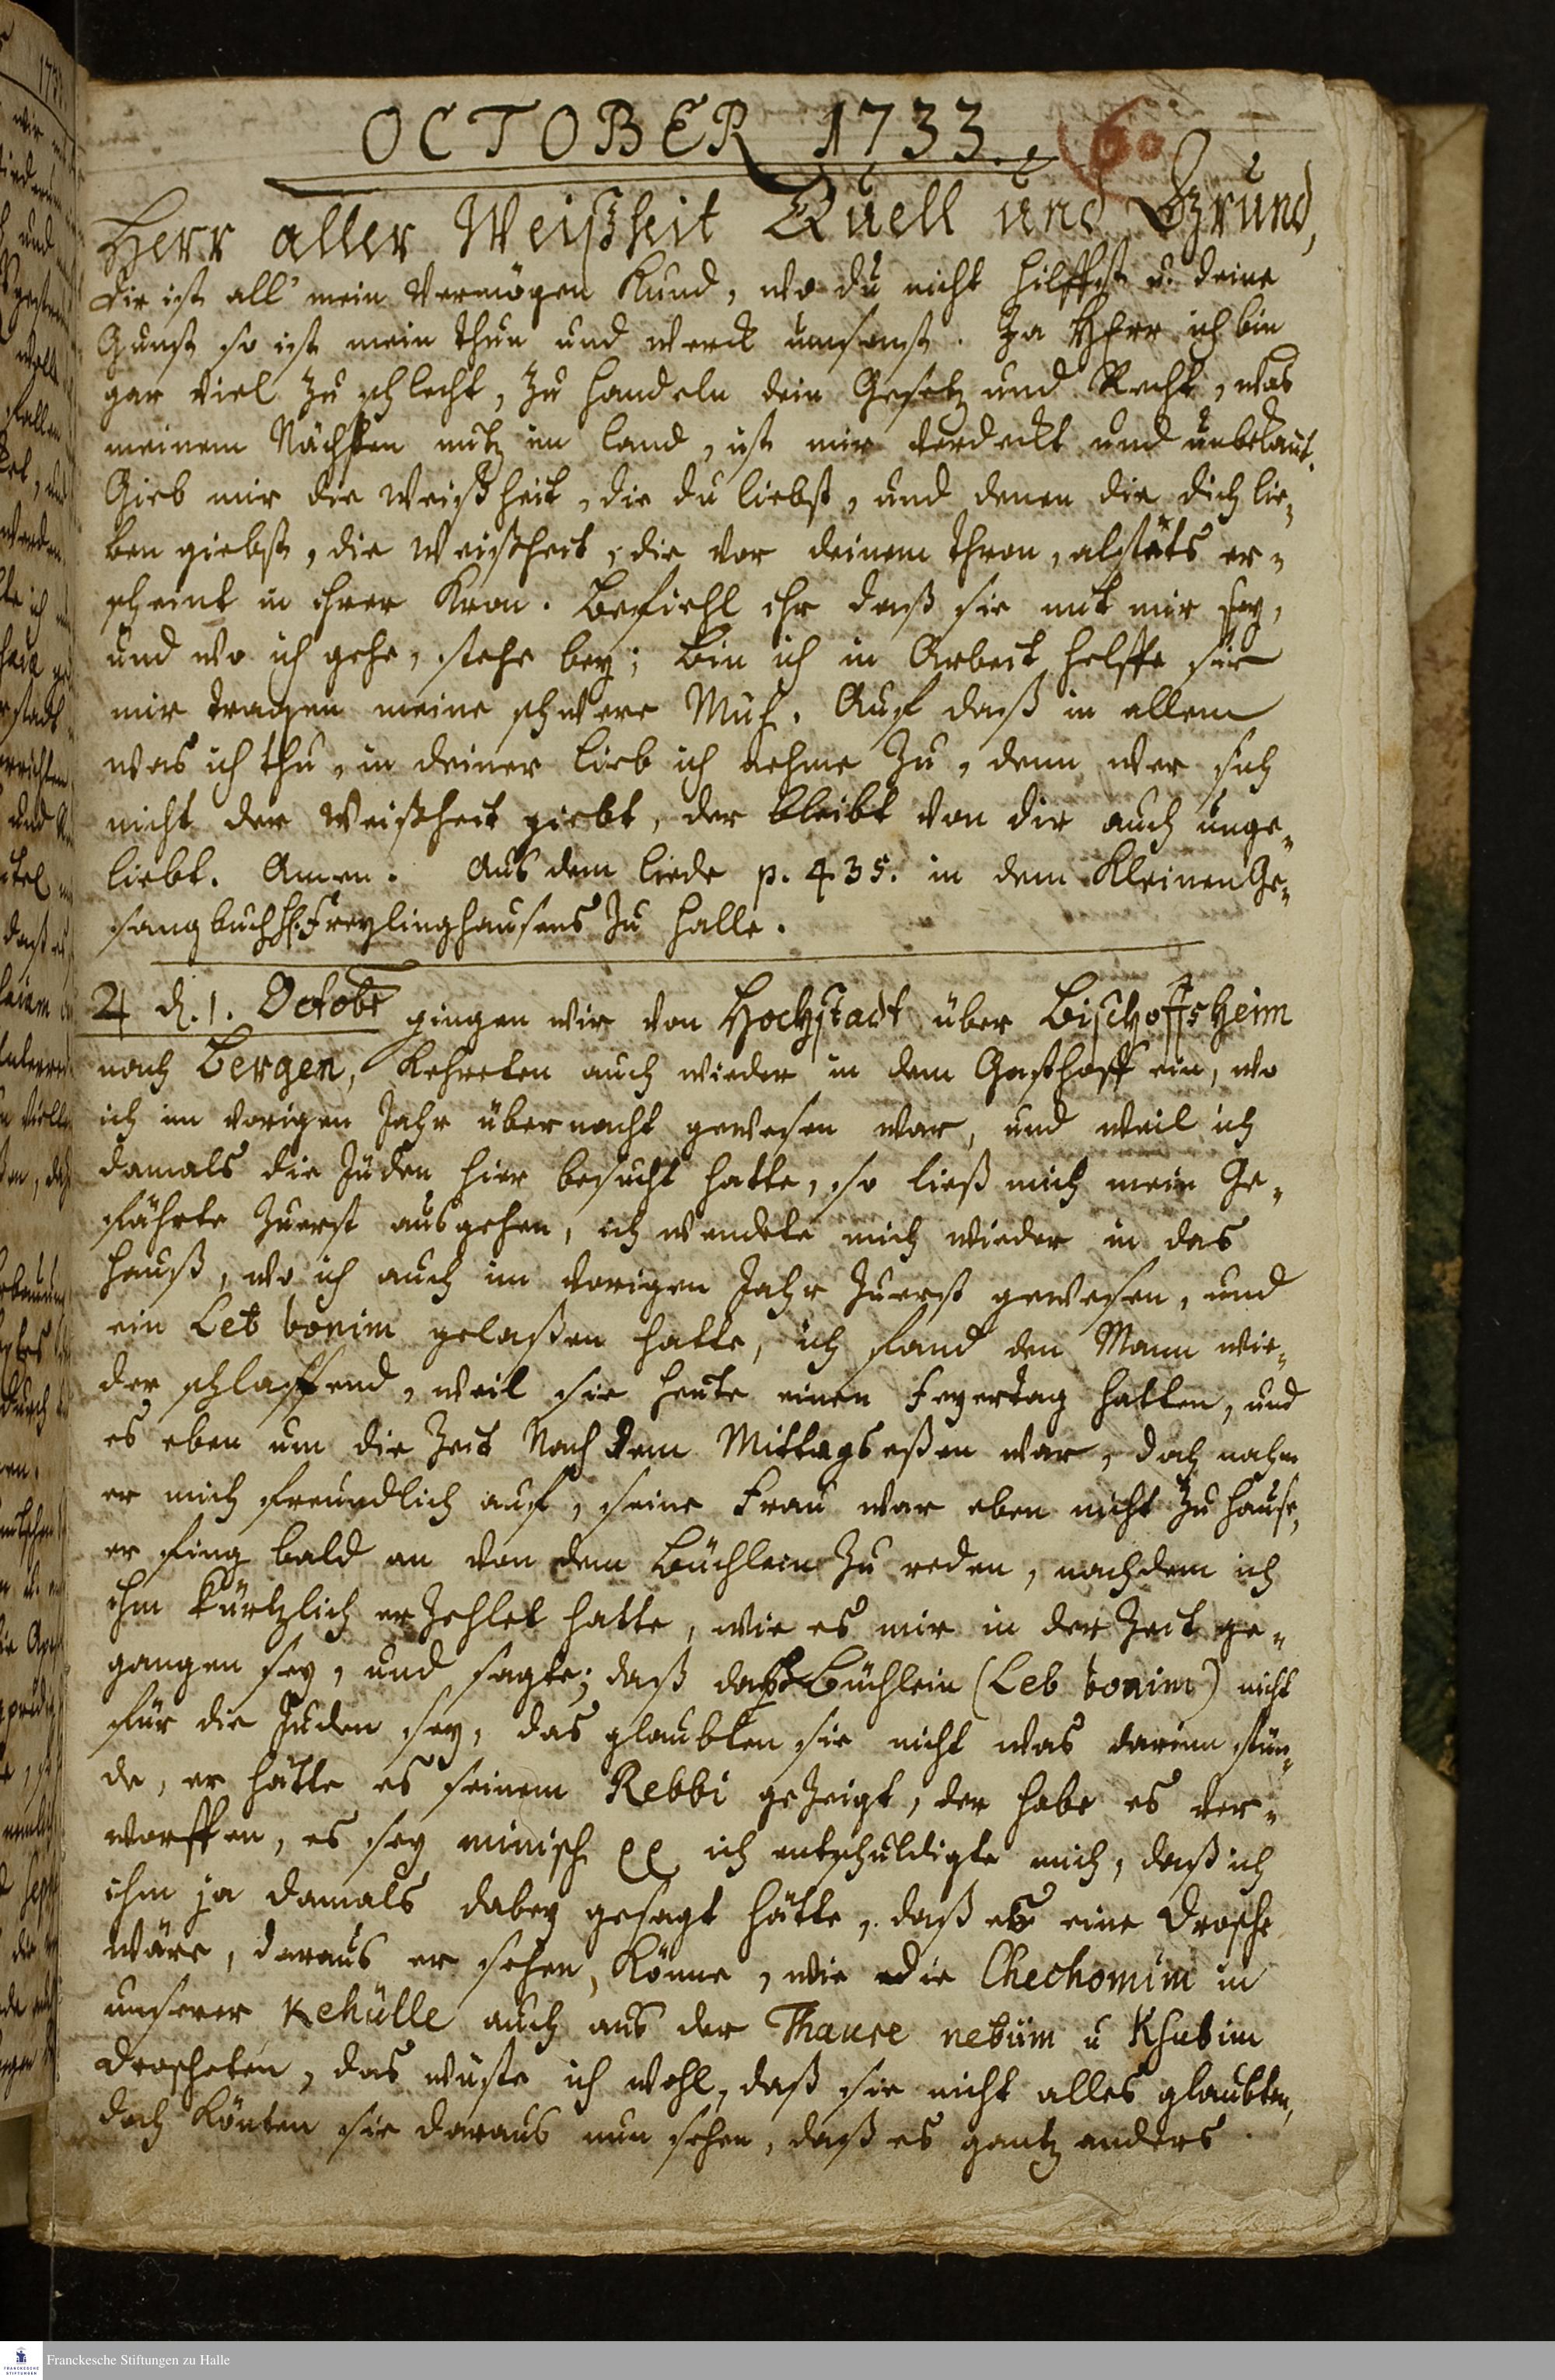 OCTOBER 1733.
60
Herr aller Weißheit Quell und Grund,
dir ist all' mein Vermögen Kund, wo du nicht hilffst u. deine
Gunst so ist mein thun und werck umsonst. Ja HErr ich bin
gar viel zu schlecht, zu handeln dein Gesetz und Recht, was
meinem Nächsten nutz im land, ist mir verdeckt und unbekant.
Gieb mir die Weißheit, die du liebst, und denen die dich lie-
ben giebst, die Weißheit, die vor deinem thron, alstäts er-
scheint in ihrer Kron. Befiehl ihr daß sie mit mir sey,
und wo ich gehe, stehe bey; Bin ich in Arbeit helffe sie
mir tragen meine schwere Müh. Auf daß in allem
was ich thu, in deiner lieb ich nehme zu, denn wer sich
nicht der Weißheit giebt, der bleibt von dir auch unge-
liebt. Amen. Aus dem liede p. 435. in dem Kleinen Ge-
sangbuch H. Freylinghausens zu Halle.
♃ d. 1. Octobr gingen wir von Hochstadt über Bischoffsheim
nach Bergen, Kehreten auch wieder in dem Gasthoff ein, wo
ich im vorigen Jahr übernacht gewesen war, und weil ich
damals die Juden hier besucht hatte, so ließ mich mein Ge-
fährte zuerst ausgehen, ich wendete mich wieder in das
Hauß, wo ich auch im vorigen Jahr zuerst gewesen, und
ein Leb tonim gelaßen hatte, ich fand den Mann wie-
der schlaffend, weil sie heute einen Feyertag hatten, und
es eben um die Zeit Nach dem Mittags eßen war, doch nahm
er mich freundlich auf, seine Frau war eben nicht zu hause,
er fing bald an von dem Büchlein zu reden, nachdem ich
ihm kürtzlich erzehlet hatte, wie es mir in der Zeit ge-
gangen sey, und sagte; daß das Büchlein (Leb tonim) nicht
für die Juden sey, das glaubten sie nicht was darinn stün-
de, er hätte es seinem Rebbi gezeigt, der habe es ver-
worffen, es sey minisch ich entschuldigte mich, daß ich
ihm ja damals dabey gesagt hätte, daß es eine Drosche
wäre, daraus er sehen, Könne, wie die Chechomim in
unserer Kehülle auch aus der Thaure nebiim u Ksubim
droscheten, das wüste ich wohl, daß sie nicht alles glaubten,
doch Könten sie daraus nun sehen, daß es gantz anders
FRANCKESCHE STIFTUNGEN
Franckesche Stiftungen zu Halle